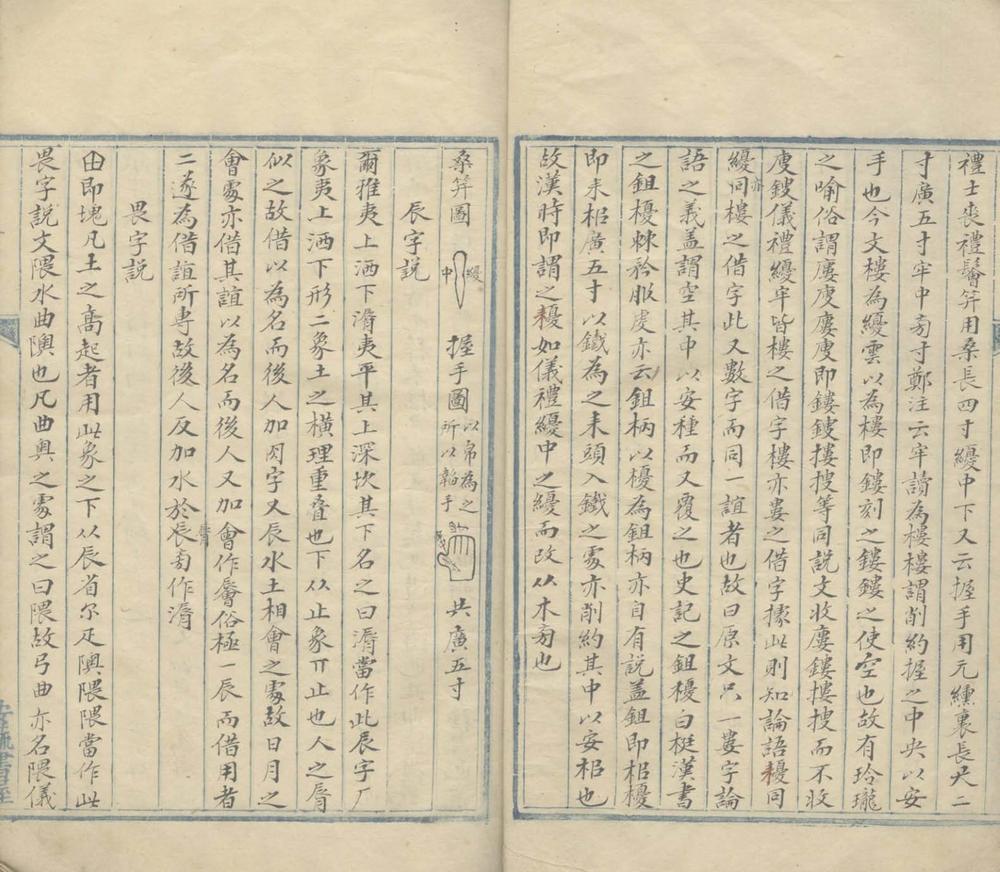 禮士喪禮鬠笄用桑長四寸纋中下又云握手用元纁裏長尺二
寸廣五寸牢中旁寸鄭注云牢讀為樓樓謂削約握之中央以安
手也今文樓為纋雲以為樓即鏤刻之鏤鏤之使空也故有玲瓏
之喻俗謂廔廋廔廋即鏤鎪摟搜等同說文收廔鏤摟搜而不收
廋鎪儀禮纋牢皆樓之借字樓亦婁之借字據此則知論語耰同
纋亦同樓之借字此又數字而同一誼者也故曰原文只一婁字論
語之義蓋謂空其中以安種而又覆之也史記之鉏櫌白梃漢書
之鉏櫌棘矜服虔亦云鉏柄以櫌為鉏柄亦自有說蓋鉏即枱櫌
即耒枱廣五寸以鐵為之耒頭入鐵之處亦削約其中以安枱也
故漢時即謂之耰如儀禮纋中之纋而改从木旁也
桑笄圖 纋中 握手圖 以帛為之所以韜手 共廣五寸
辰字説
爾雅夷上洒下漘夷平其上深坎其下名之曰漘當作此辰字厂
象夷上洒下形二象土之橫理重疊也下从止象丌止也人之脣
似之故借以為名而後人加肉字又辰水土相會之處故日月之
會處亦借其誼以為名而後人又加會作䢅俗極一辰而借用者
二遂為借誼所専故後人反加水於辰脣旁作漘
畏字説
由即塊凡土之高起者用此象之下从辰省尔疋隩隈隈當作此
畏字説文隈水曲隩也凡曲奥之處謂之曰隈故弓曲亦名隈儀